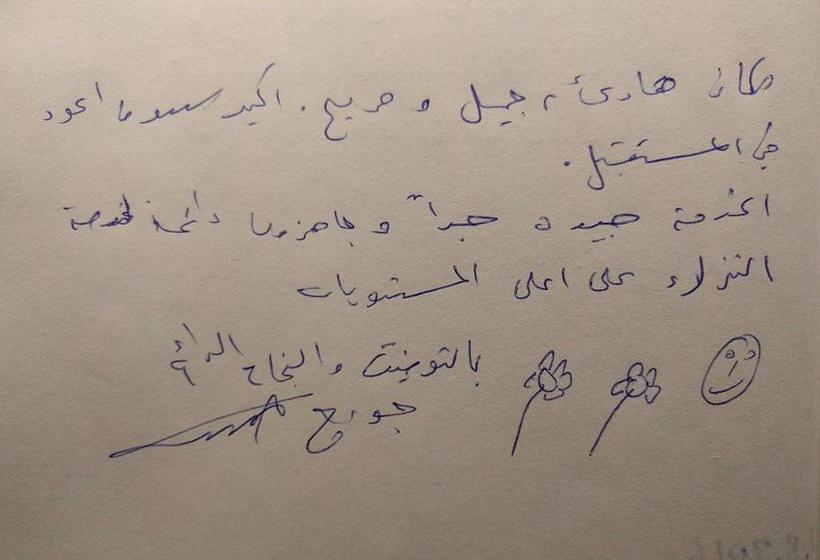 مكان هادئ، جميل و مريح. اكيد سوف اعود
في المستقبل.
الخدمة جيده جداً و جاهزون دائما لخدمة
النزلاء على اعلى المستويات
بالتوفيق والنجاح الدائم
جورج